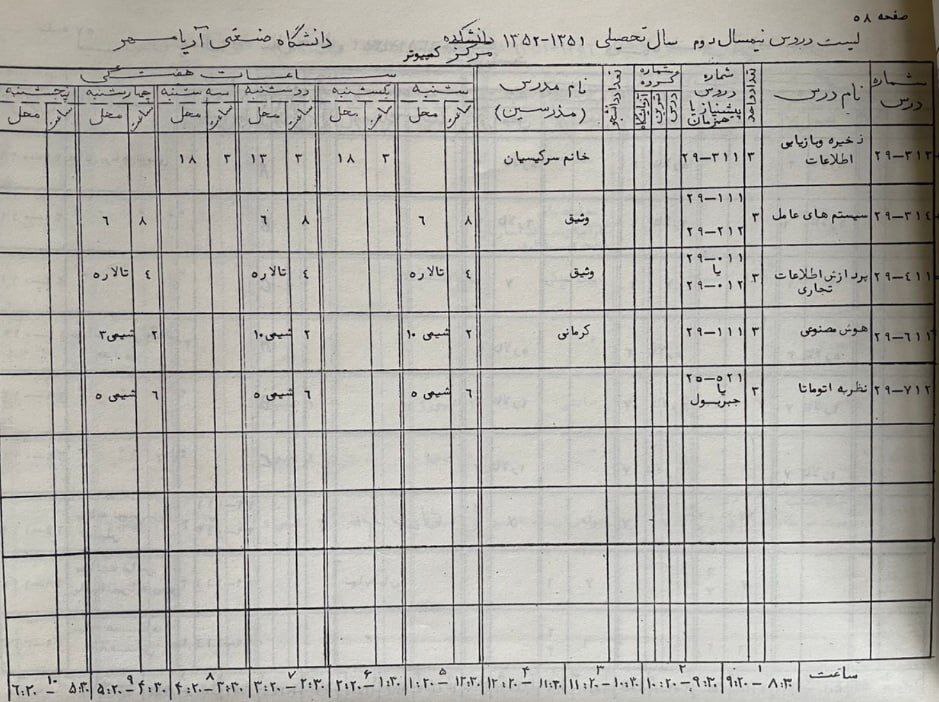 صفحه ۵۸
لیست دروس نیمسال دوم سال تحصیلی ۱۳۵۱-۱۳۵۲ دانشکده مرکز کمپیوتر دانشگاه صنعتی آریامهر
شماره درس نام درس تعداد واحد شماره دروس پیشنیاز یا همزمان شماره گروه درس تمرین آزمایشگاه تعداد دانشجو نام مدرس (مدرسین) ساعات هفتگی
شنبه یکشنبه دوشنبه سه شنبه چهارشنبه پنجشنبه
ساعت محل ساعت محل ساعت محل ساعت محل ساعت محل ساعت محل
۲۹-۳۱۳ ذخیره و بازیابی اطلاعات ۳ ۲۹-۳۱۱ خانم سرکیسیان ۳ ۱۸ ۳ ۱۳ ۳ ۱۸
۲۹-۳۱۴ سیستم های عامل ۳ ۲۹-۱۱۱ ۲۹-۲۱۲ وثیق ۸ ۶ ۸ ۶ ۸ ۶
۲۹-۴۱۱ پردازش اطلاعات تجاری ۳ ۲۹-۰۱۱ یا ۲۹-۰۱۲ وثیق ۴ تالار ه ۴ تالار ه ۴ تالار ه
۲۹-۶۱۱ هوش مصنوعی ۳ ۲۹-۱۱۱ کرمانی ۲ شیمی ۱۰ ۲ شیمی ۱۰ ۲ شیمی ۳
۲۹-۷۱۲ نظریه اتوماتا ۳ ۲۵-۵۲۱ یا جبر بول ۶ شیمی ۵ ۶ شیمی ۵ ۶ شیمی ۵
ساعت ۱ ۲ ۳ ۴ ۵ ۶ ۷ ۸ ۹ ۱۰
۸:۳۰ - ۹:۲۰ ۹:۳۰ - ۱۰:۲۰ ۱۰:۳۰ - ۱۱:۲۰ ۱۱:۳۰ - ۱۲:۲۰ ۱۲:۳۰ - ۱:۲۰ ۱:۳۰ - ۲:۲۰ ۲:۳۰ - ۳:۲۰ ۳:۳۰ - ۴:۲۰ ۴:۳۰ - ۵:۲۰ ۵:۳۰ - ۶:۲۰